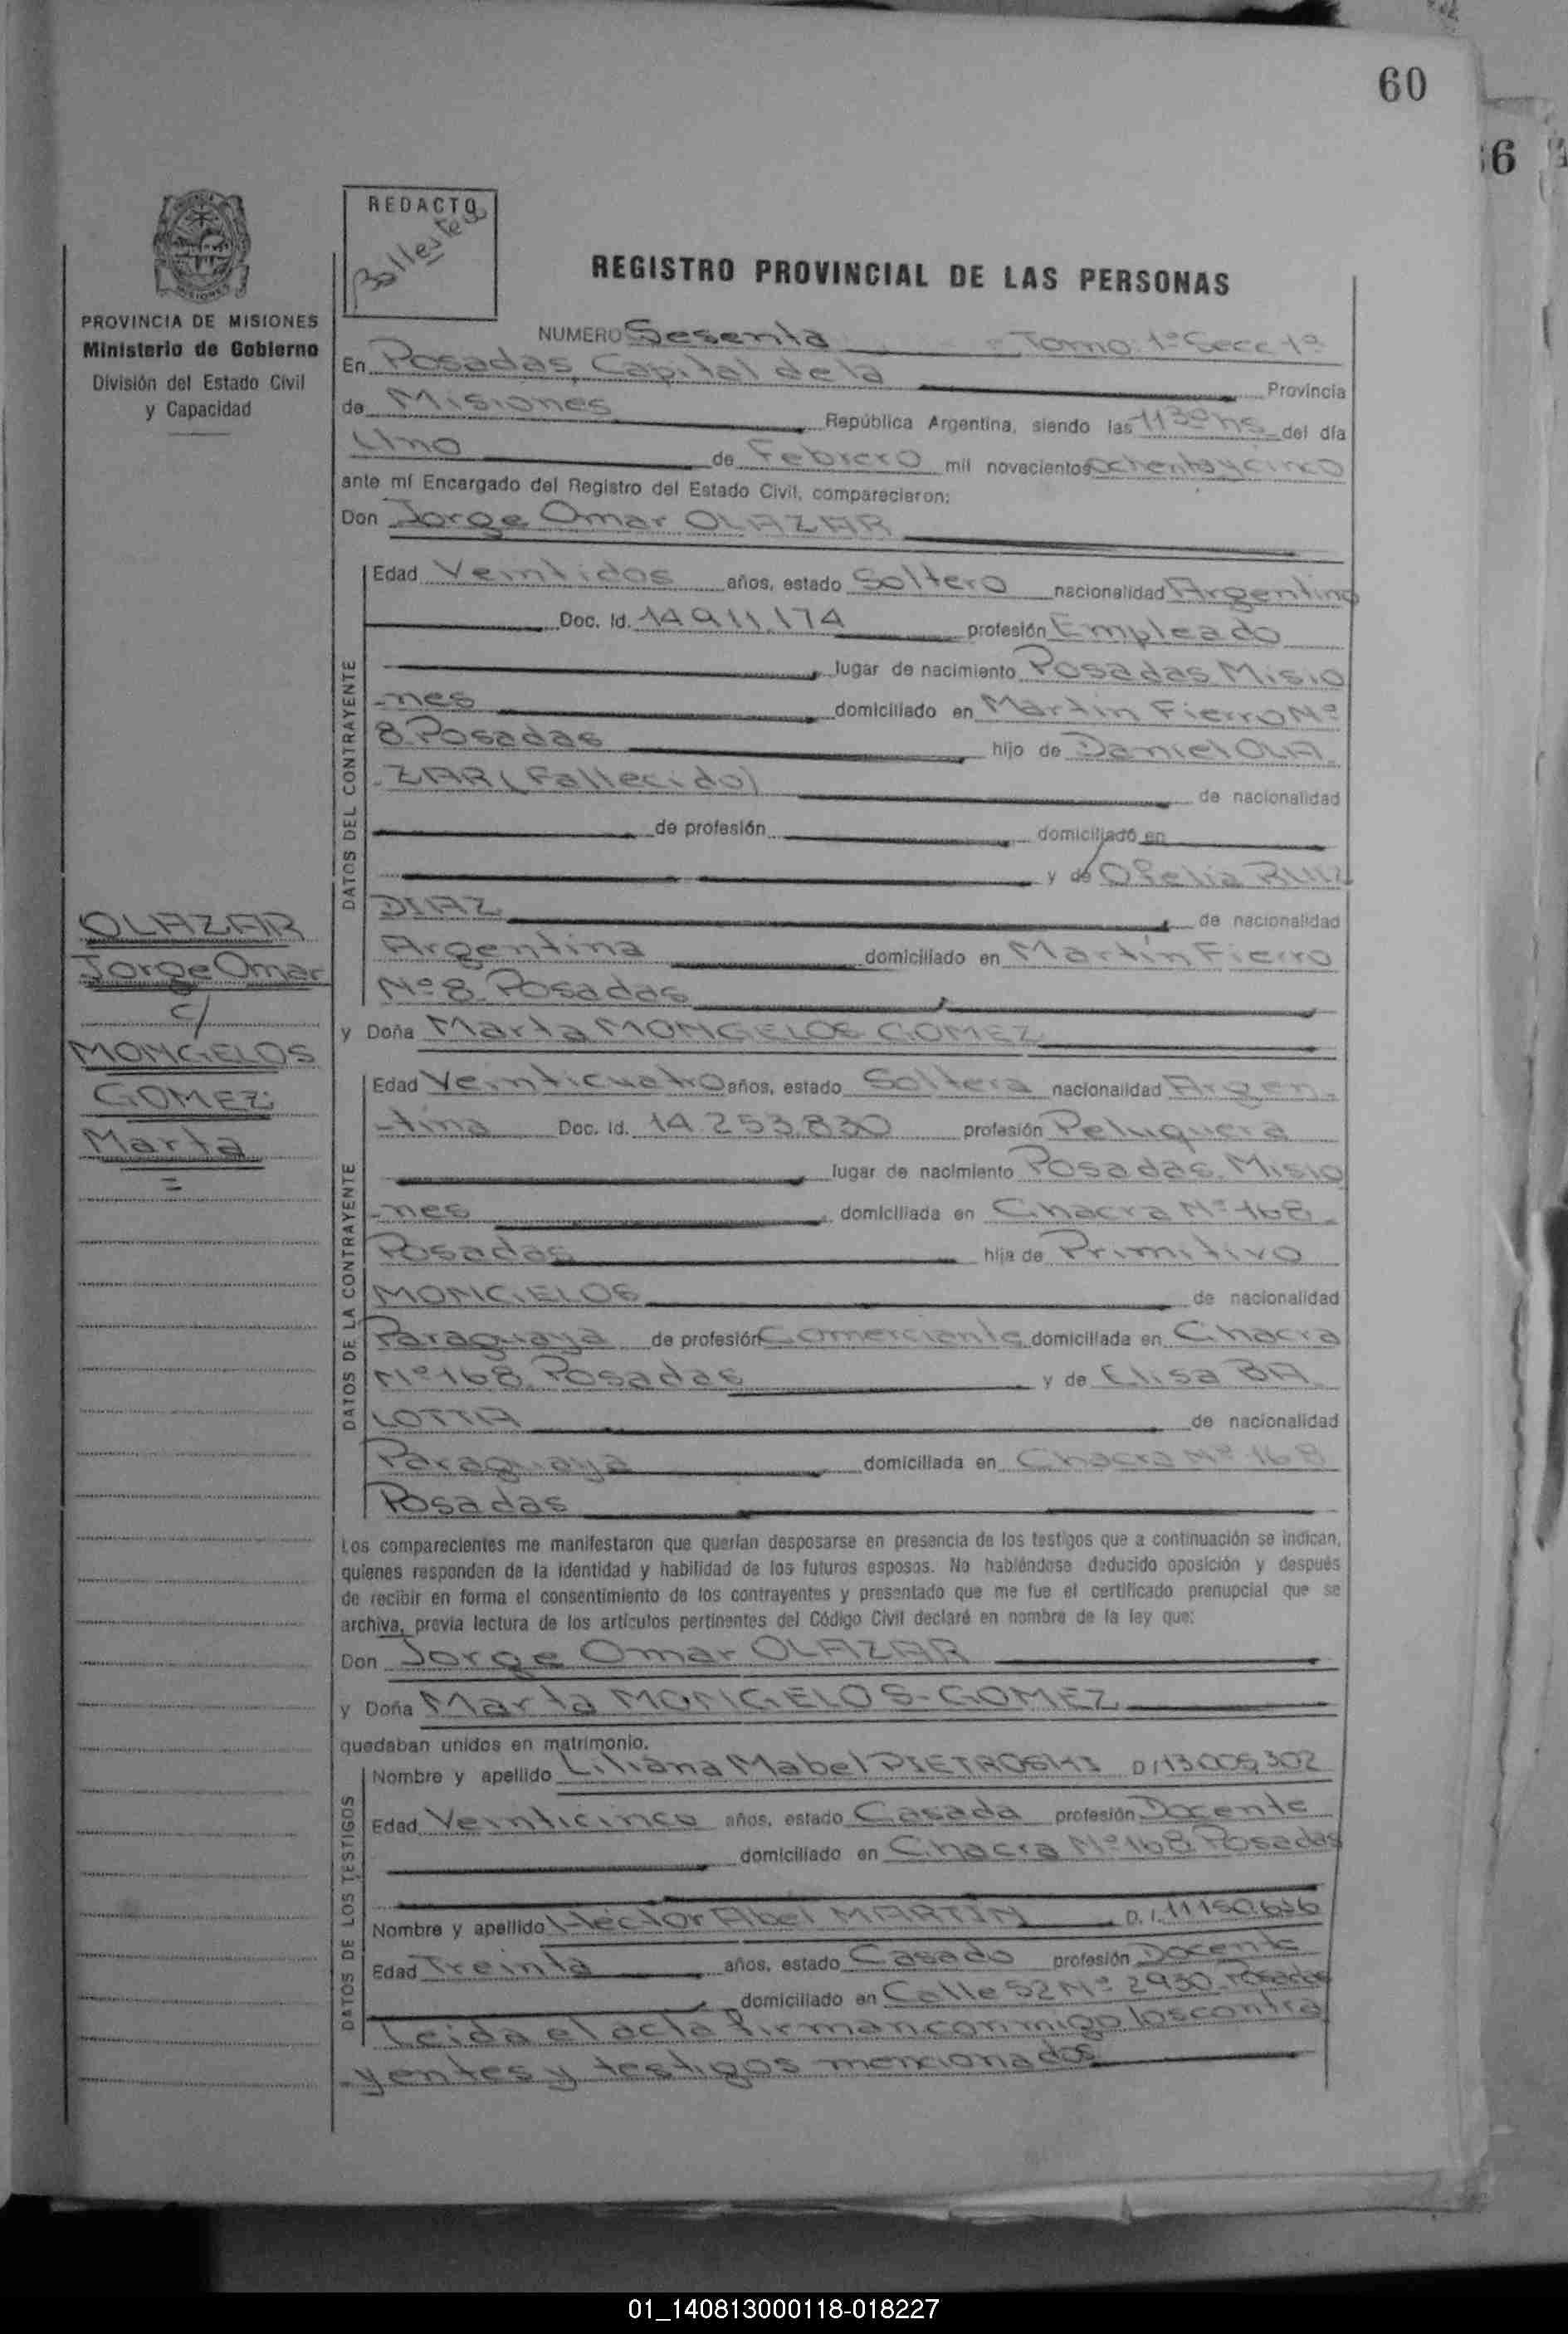 60
6
REDACTO
Ballester
MISIONES
PROVINCIA DE MISIONES
Ministerio de Gobierno
División del Estado Civil
y Capacidad
REGISTRO PROVINCIAL DE LAS PERSONAS
NUMERO Sesenta Tomo 1º Secc 1º
En Posadas, Capital de la Provincia
de Misiones República Argentina, siendo las 11 30 hs del día
Uno de Febrero mil novecientos ochenta y cinco
ante mí Encargado del Registro del Estado Civil, comparecieron:
Don Jorge Omar OLAZAR
DATOS DEL CONTRAYENTE
Edad Veintidos años, estado Soltero nacionalidad Argentino
Doc. Id. 14 911.174 profesión Empleado
lugar de nacimiento Posadas Misio
-nes domiciliado en Martin Fierro Nº
8. Posadas hijo de Daniel OLA
-ZAR (Fallecido) de nacionalidad
de profesión domiciliado en
y de Ofelia RUIZ
DIAZ de nacionalidad
Argentina domiciliado en Martin Fierro
Nº 8. Posadas
y Doña Marta MONGELOS GOMEZ
OLAZAR
Jorge Omar
c/
MONGELOS
GOMEZ:
Marta
=
DATOS DE LA CONTRAYENTE
Edad Veinticuatro años, estado Soltera nacionalidad Argen-
-tina Doc. Id. 14.253.830 profesión Peluquera
lugar de nacimiento Posadas. Misio
-nes domiciliada en Chacra Nº 168.
Posadas hija de Primitivo
MONGELOS de nacionalidad
Paraguaya de profesión Comerciante domiciliada en Chacra
Nº 168. Posadas y de Elisa BA
LOTTA de nacionalidad
Paraguaya domiciliada en Chacra Nº 168
Posadas
Los comparecientes me manifestaron que querían desposarse en presencia de los testigos que a continuación se indican,
quienes responden de la identidad y habilidad de los futuros esposos. No habiéndose deducido oposición y después
de recibir en forma el consentimiento de los contrayentes y presentado que me fue el certificado prenupcial que se
archiva, previa lectura de los artículos pertinentes del Código Civil declaré en nombre de la ley que:
Don Jorge Omar OLAZAR
y Doña Marta MONGELOS-GOMEZ
quedaban unidos en matrimonio.
DATOS DE LOS TESTIGOS
Nombre y apellido Liliana Mabel PIETROSKI D.I 13.005.302
Edad Veinticinco años, estado Casada profesión Docente
domiciliado en Chacra Nº 168. Posadas
Nombre y apellido Héctor Abel MARTIN D.I. 11.150.636
Edad Treinta años, estado Casado profesión Docente
domiciliado en Calle 52 Nº 2930. Posadas
Leida el acta firman conmigo los contra
-yentes y testigos mencionados
01_140813000118-018227